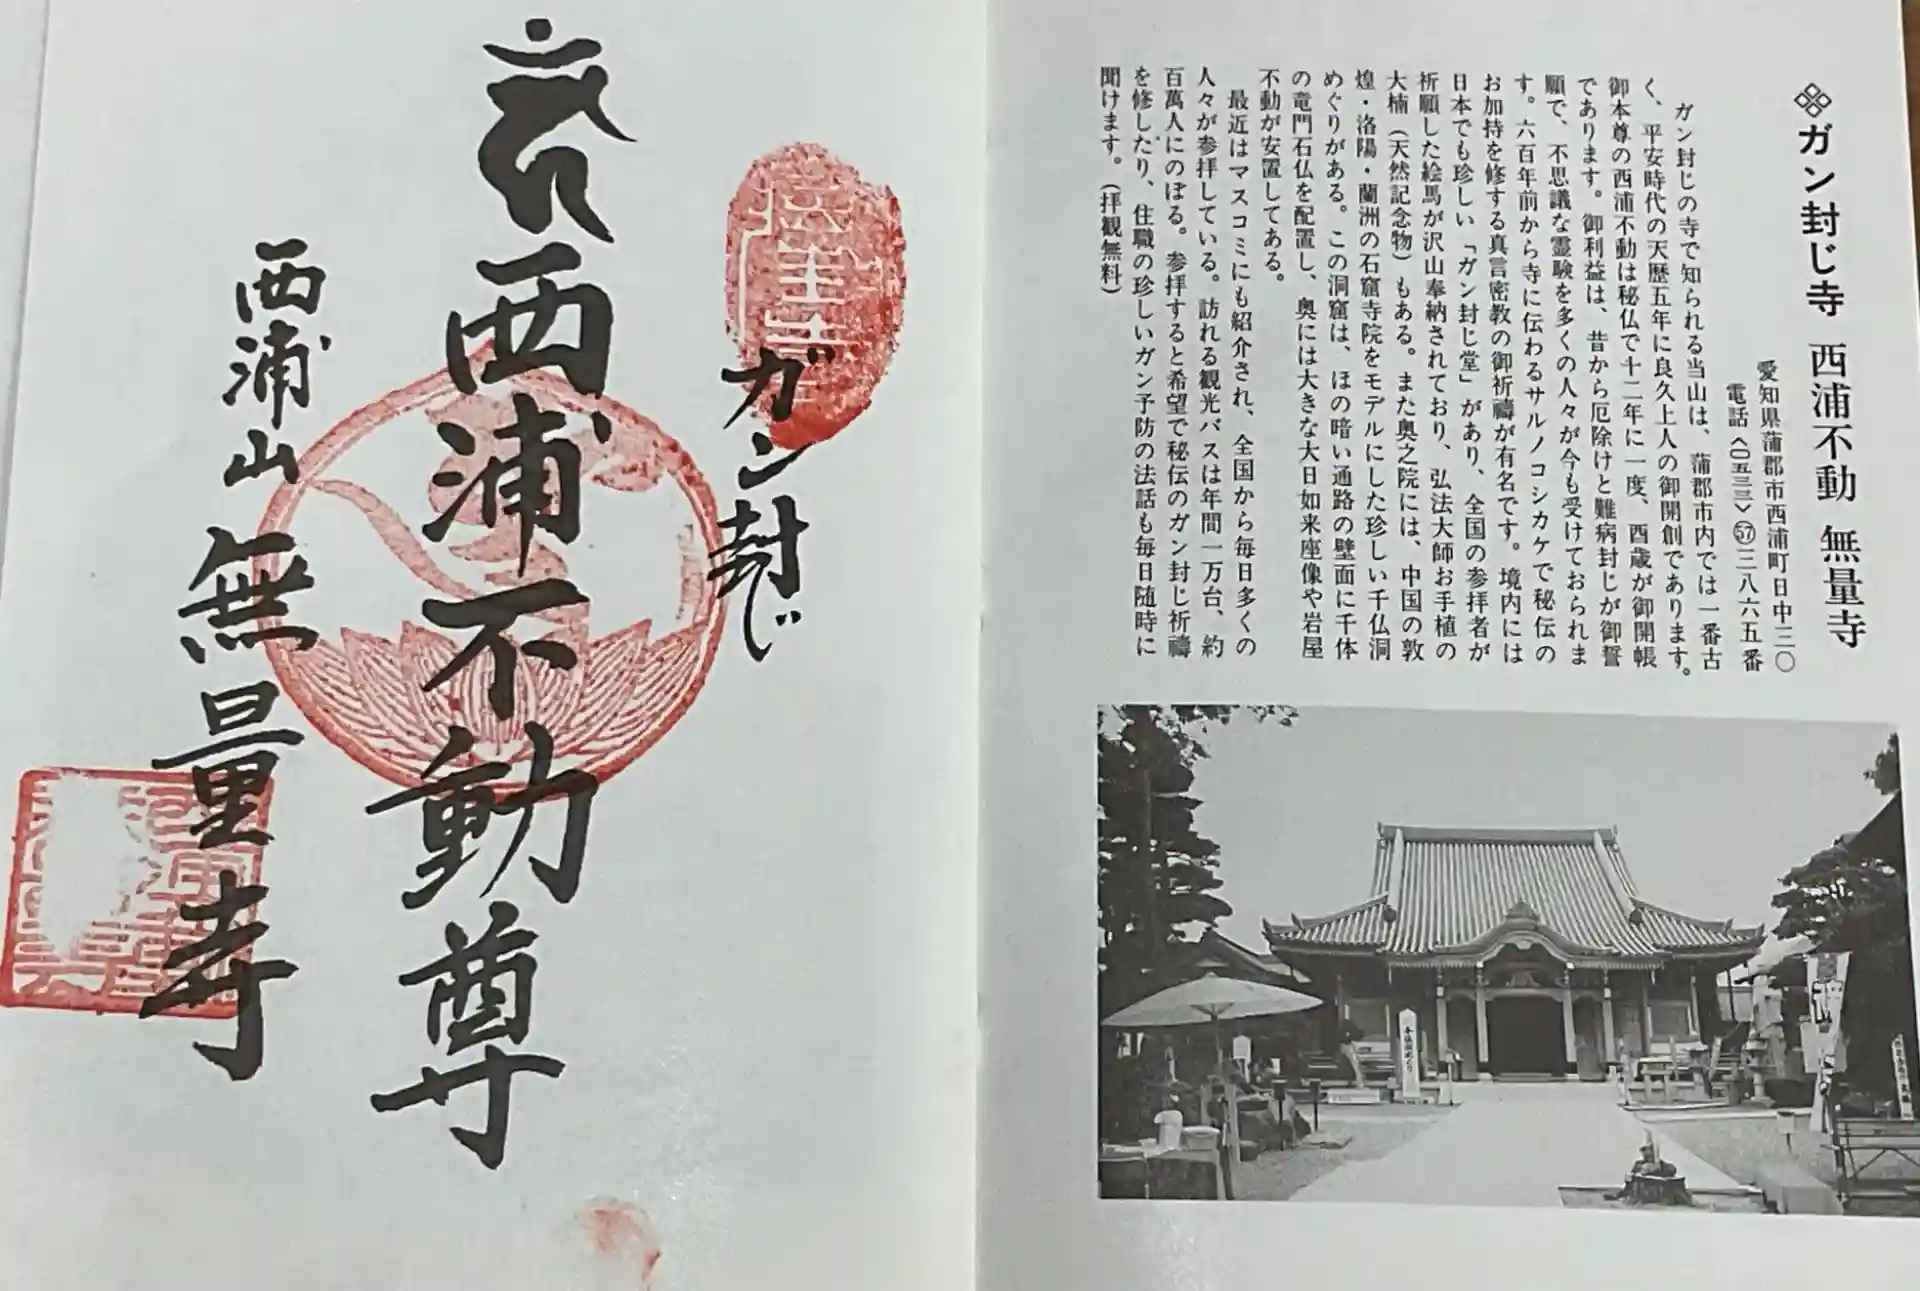 ❖ガン封じ寺 西浦不動 無量寺
愛知県蒲郡市西浦町日中三〇
電話〈〇五三三〉㊼三八六五番
ガン封じの寺で知られる当山は、蒲郡市内では一番古
く、平安時代の天歴五年に良久上人の御開創であります。
御本尊の西浦不動は秘仏で十二年に一度、酉歳が御開帳
であります。御利益は、昔から厄除けと難病封じが御誓
願で、不思議な霊験を多くの人々が今も受けておられま
す。六百年前から寺に伝わるサルノコシカケで秘伝の
お加持を修する真言密教の御祈禱が有名です。境内には
日本でも珍しい「ガン封じ堂」があり、全国の参拝者が
祈願した絵馬が沢山奉納されており、弘法大師お手植の
大楠（天然記念物）もある。また奥之院には、中国の敦
煌・洛陽・蘭洲の石窟寺院をモデルにした珍しい千仏洞
めぐりがある。この洞窟は、ほの暗い通路の壁面に千体
の竜門石仏を配置し、奥には大きな大日如来座像や岩屋
不動が安置してある。
最近はマスコミにも紹介され、全国から毎日多くの
人々が参拝している。訪れる観光バスは年間一万台、約
百萬人にのぼる。参拝すると希望で秘伝のガン封じ祈禱
を修したり、住職の珍しいガン予防の法話も毎日随時に
聞けます。（拝観無料）
ガン封じ
西浦不動尊
西浦山 無量寺